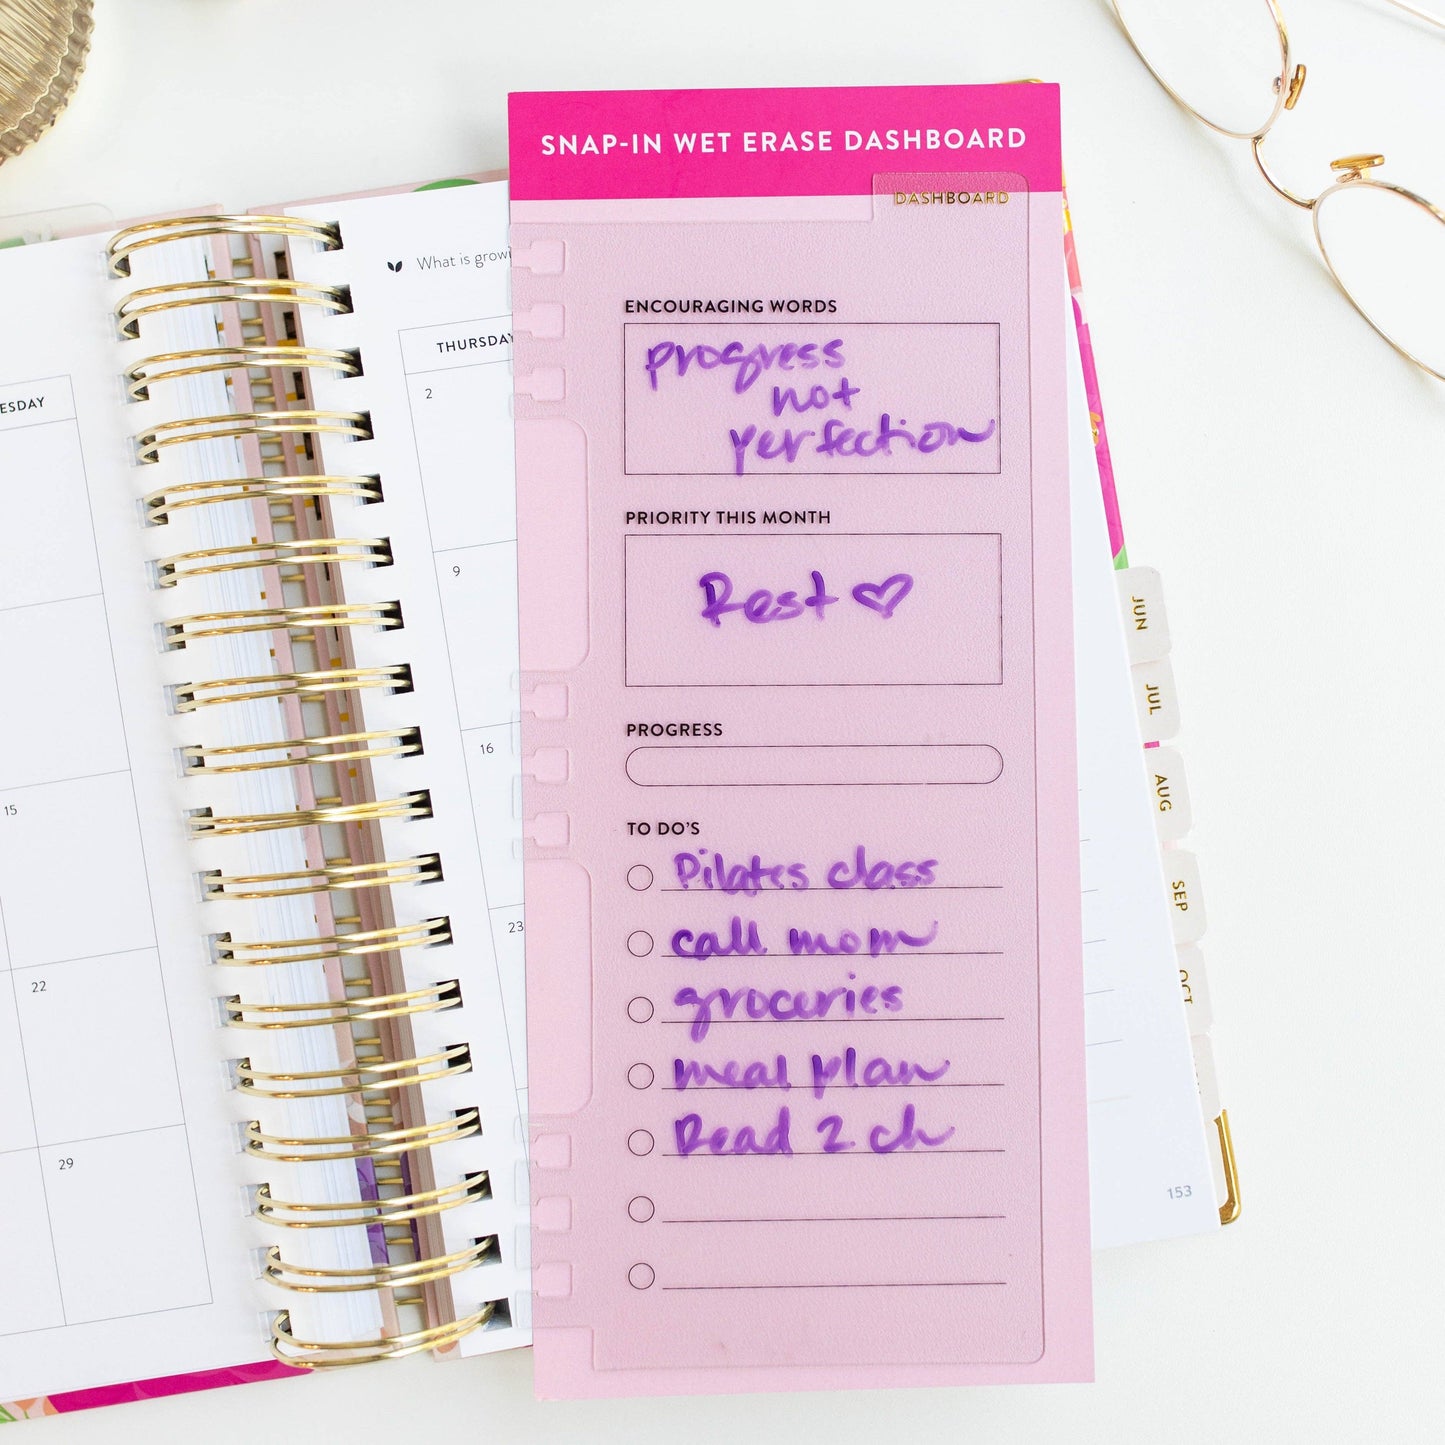 SNAP-IN WET ERASE DASHBOARD
DASHBOARD
What is growi
ESDAY
THURSDAY
2
9
16
23
15
22
29
ENCOURAGING WORDS
progress
not
perfection
PRIORITY THIS MONTH
Rest
PROGRESS
TO DO'S
Pilates class
call mom
groceries
meal plan
Read 2 ch
JUN
JUL
AUG
SEP
OCT
153